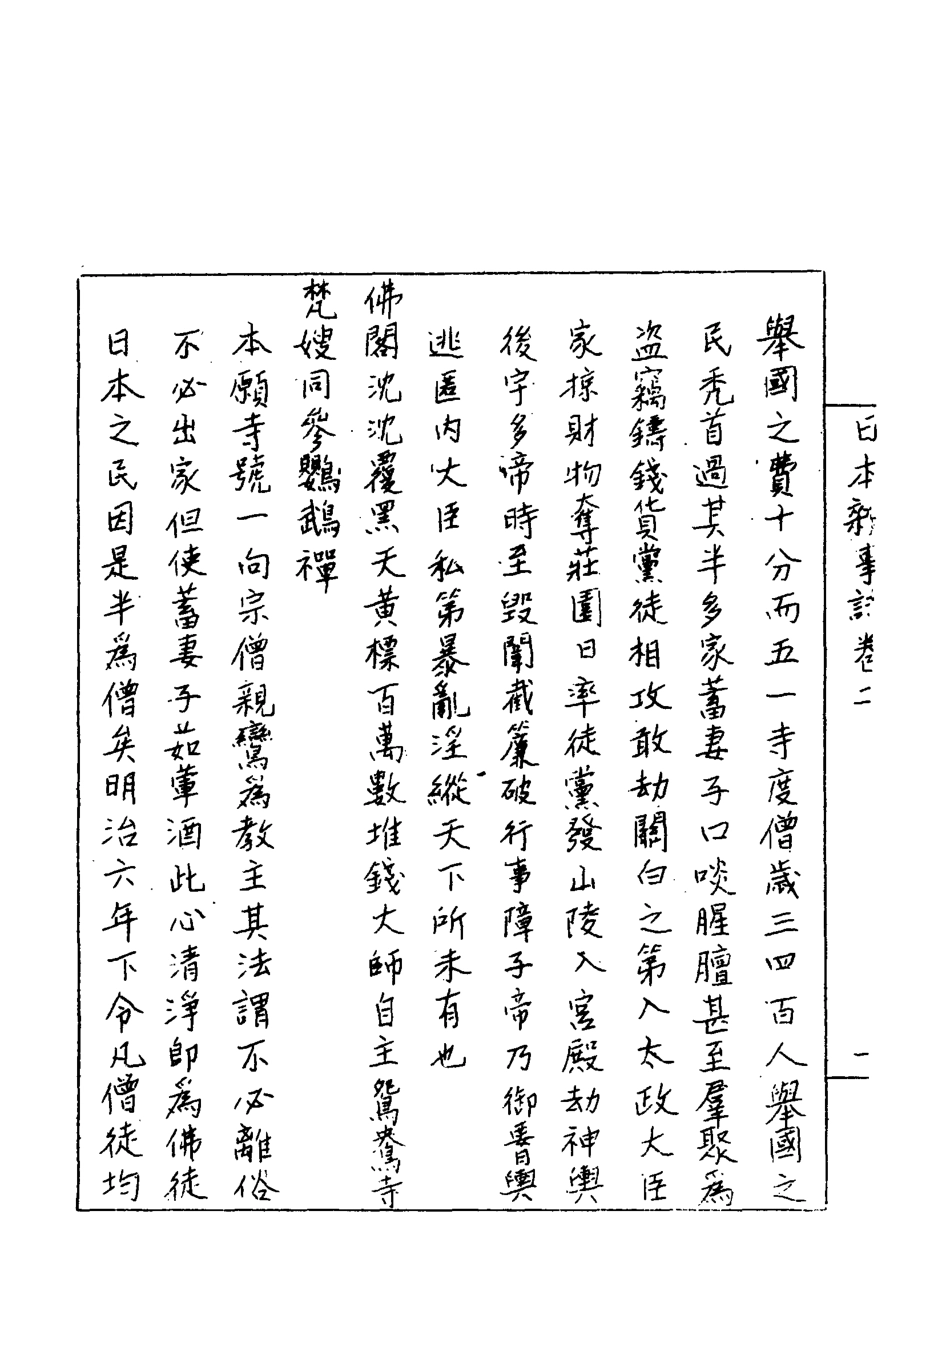 日本新事詩卷二
一
舉國之費十分而五一寺度僧歲三四百人舉國之
民禿首過其半多家蓄妻子口啖腥膻甚至羣聚爲
盜竊鑄錢貨黨徒相攻敢劫關白之第入太政大臣
家掠財物奪莊園日率徒黨發山陵入宮殿劫神輿
後宇多帝時至毀闌截簾破行事障子帝乃御畨輿
逃匿內大臣私第暴亂淫縱天下所未有也
佛閣沈沈覆黑天黃標百萬數堆錢大師自主鴛鴦寺
梵嫂同參鸚鵡禪
本願寺號一向宗僧親鸞爲教主其法謂不必離俗
不必出家但使蓄妻子茹葷酒此心清淨即爲佛徒
日本之民因是半爲僧矣明治六年下令凡僧徒均